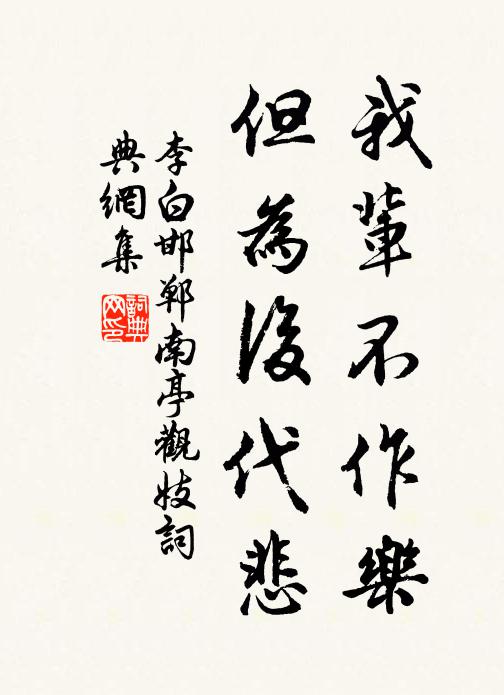 我輩不作樂
但為後代悲
李白邯鄲南亭觀妓詞
典網集
詞典
网印